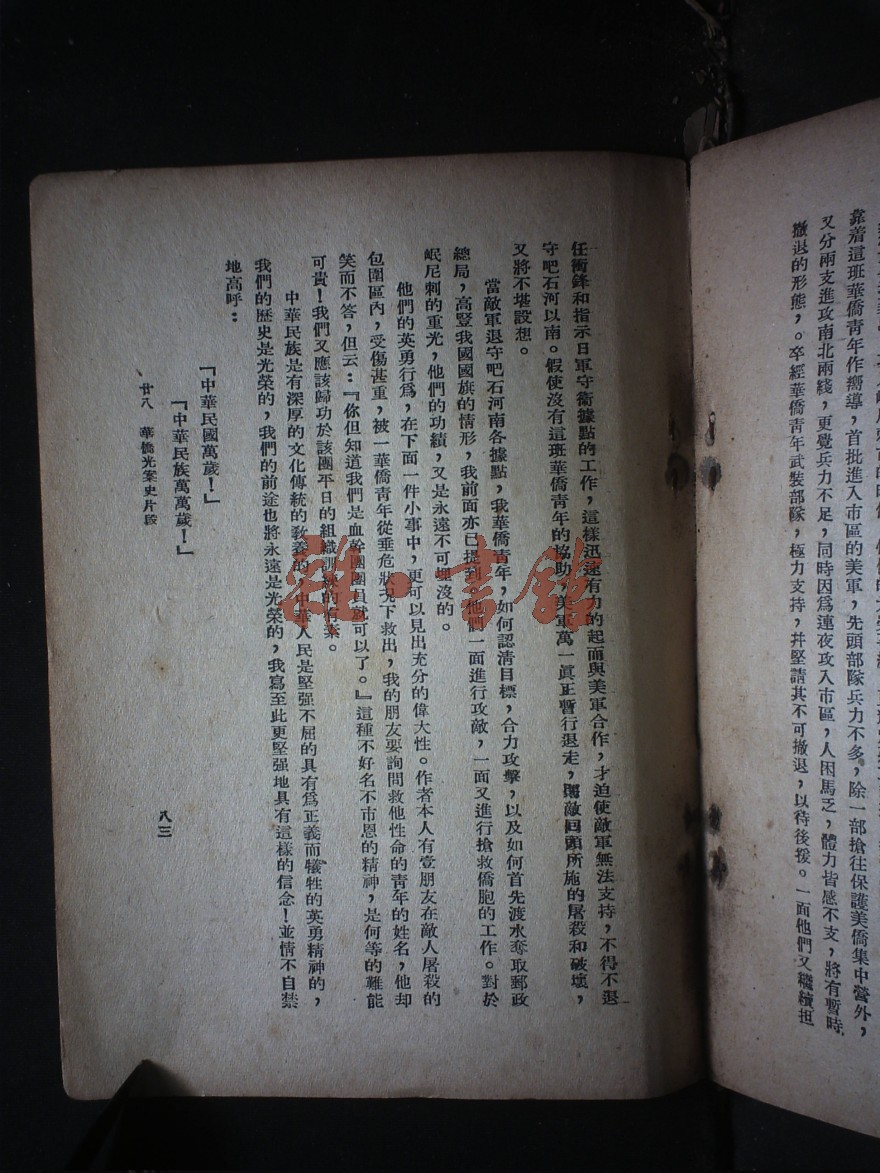 靠着這班華僑青年作嚮導，首批進入市區的美軍，先頭部隊兵力不多，除一部搶往保護美僑集中營外，
又分兩支進攻南北兩綫，更覺兵力不足，同時因爲連夜攻入市區，人困馬乏，體力皆感不支，將有暫時
撤退的形態，。卒經華僑青年武裝部隊，極力支持，幷堅請其不可撤退，以待後援。一面他們又繼續担
任衝鋒和指示日軍守衞據點的工作，這樣迅速有力的起而與美軍合作，才迫使敵軍無法支持，不得不退
守吧石河以南。假使沒有這班華僑青年的協助，美軍萬一眞正暫行退走，敵回頭所施的屠殺和破壞，
又將不堪設想。
當敵軍退守吧石河南各據點，我華僑青年，如何認淸目標，合力攻擊，以及如何首先渡水奪取郵政
總局，高豎我國國旗的情形，我前面亦已提到，他們一面進行攻敵，一面又進行搶救僑胞的工作。對於
岷尼刺的重光，他們的功績，又是永遠不可埋沒的。
他們的英勇行爲，在下面一件小事中，更可以見出充分的偉大性。作者本人有壹朋友在敵人屠殺的
包圍區內，受傷甚重，被一華僑青年從垂危狀况下救出，我的朋友要詢問救他性命的青年的姓名，他却
笑而不答，但云：『你但知道我們是血幹團團員就可以了。』這種不好名不市恩的精神，是何等的難能
可貴！我們又應該歸功於該團平日的組織訓練的有素。
中華民族是有深厚的文化傳統的敎養的，中華人民是堅强不屈的具有爲正義而犧牲的英勇精神的，
我們的歷史是光榮的，我們的前途也將永遠是光榮的，我寫至此更堅强地具有這樣的信念！並情不自禁
地高呼：
『中華民國萬歲！』
『中華民族萬萬歲！』
廿八　華僑光案史片段
八三
雜·書館